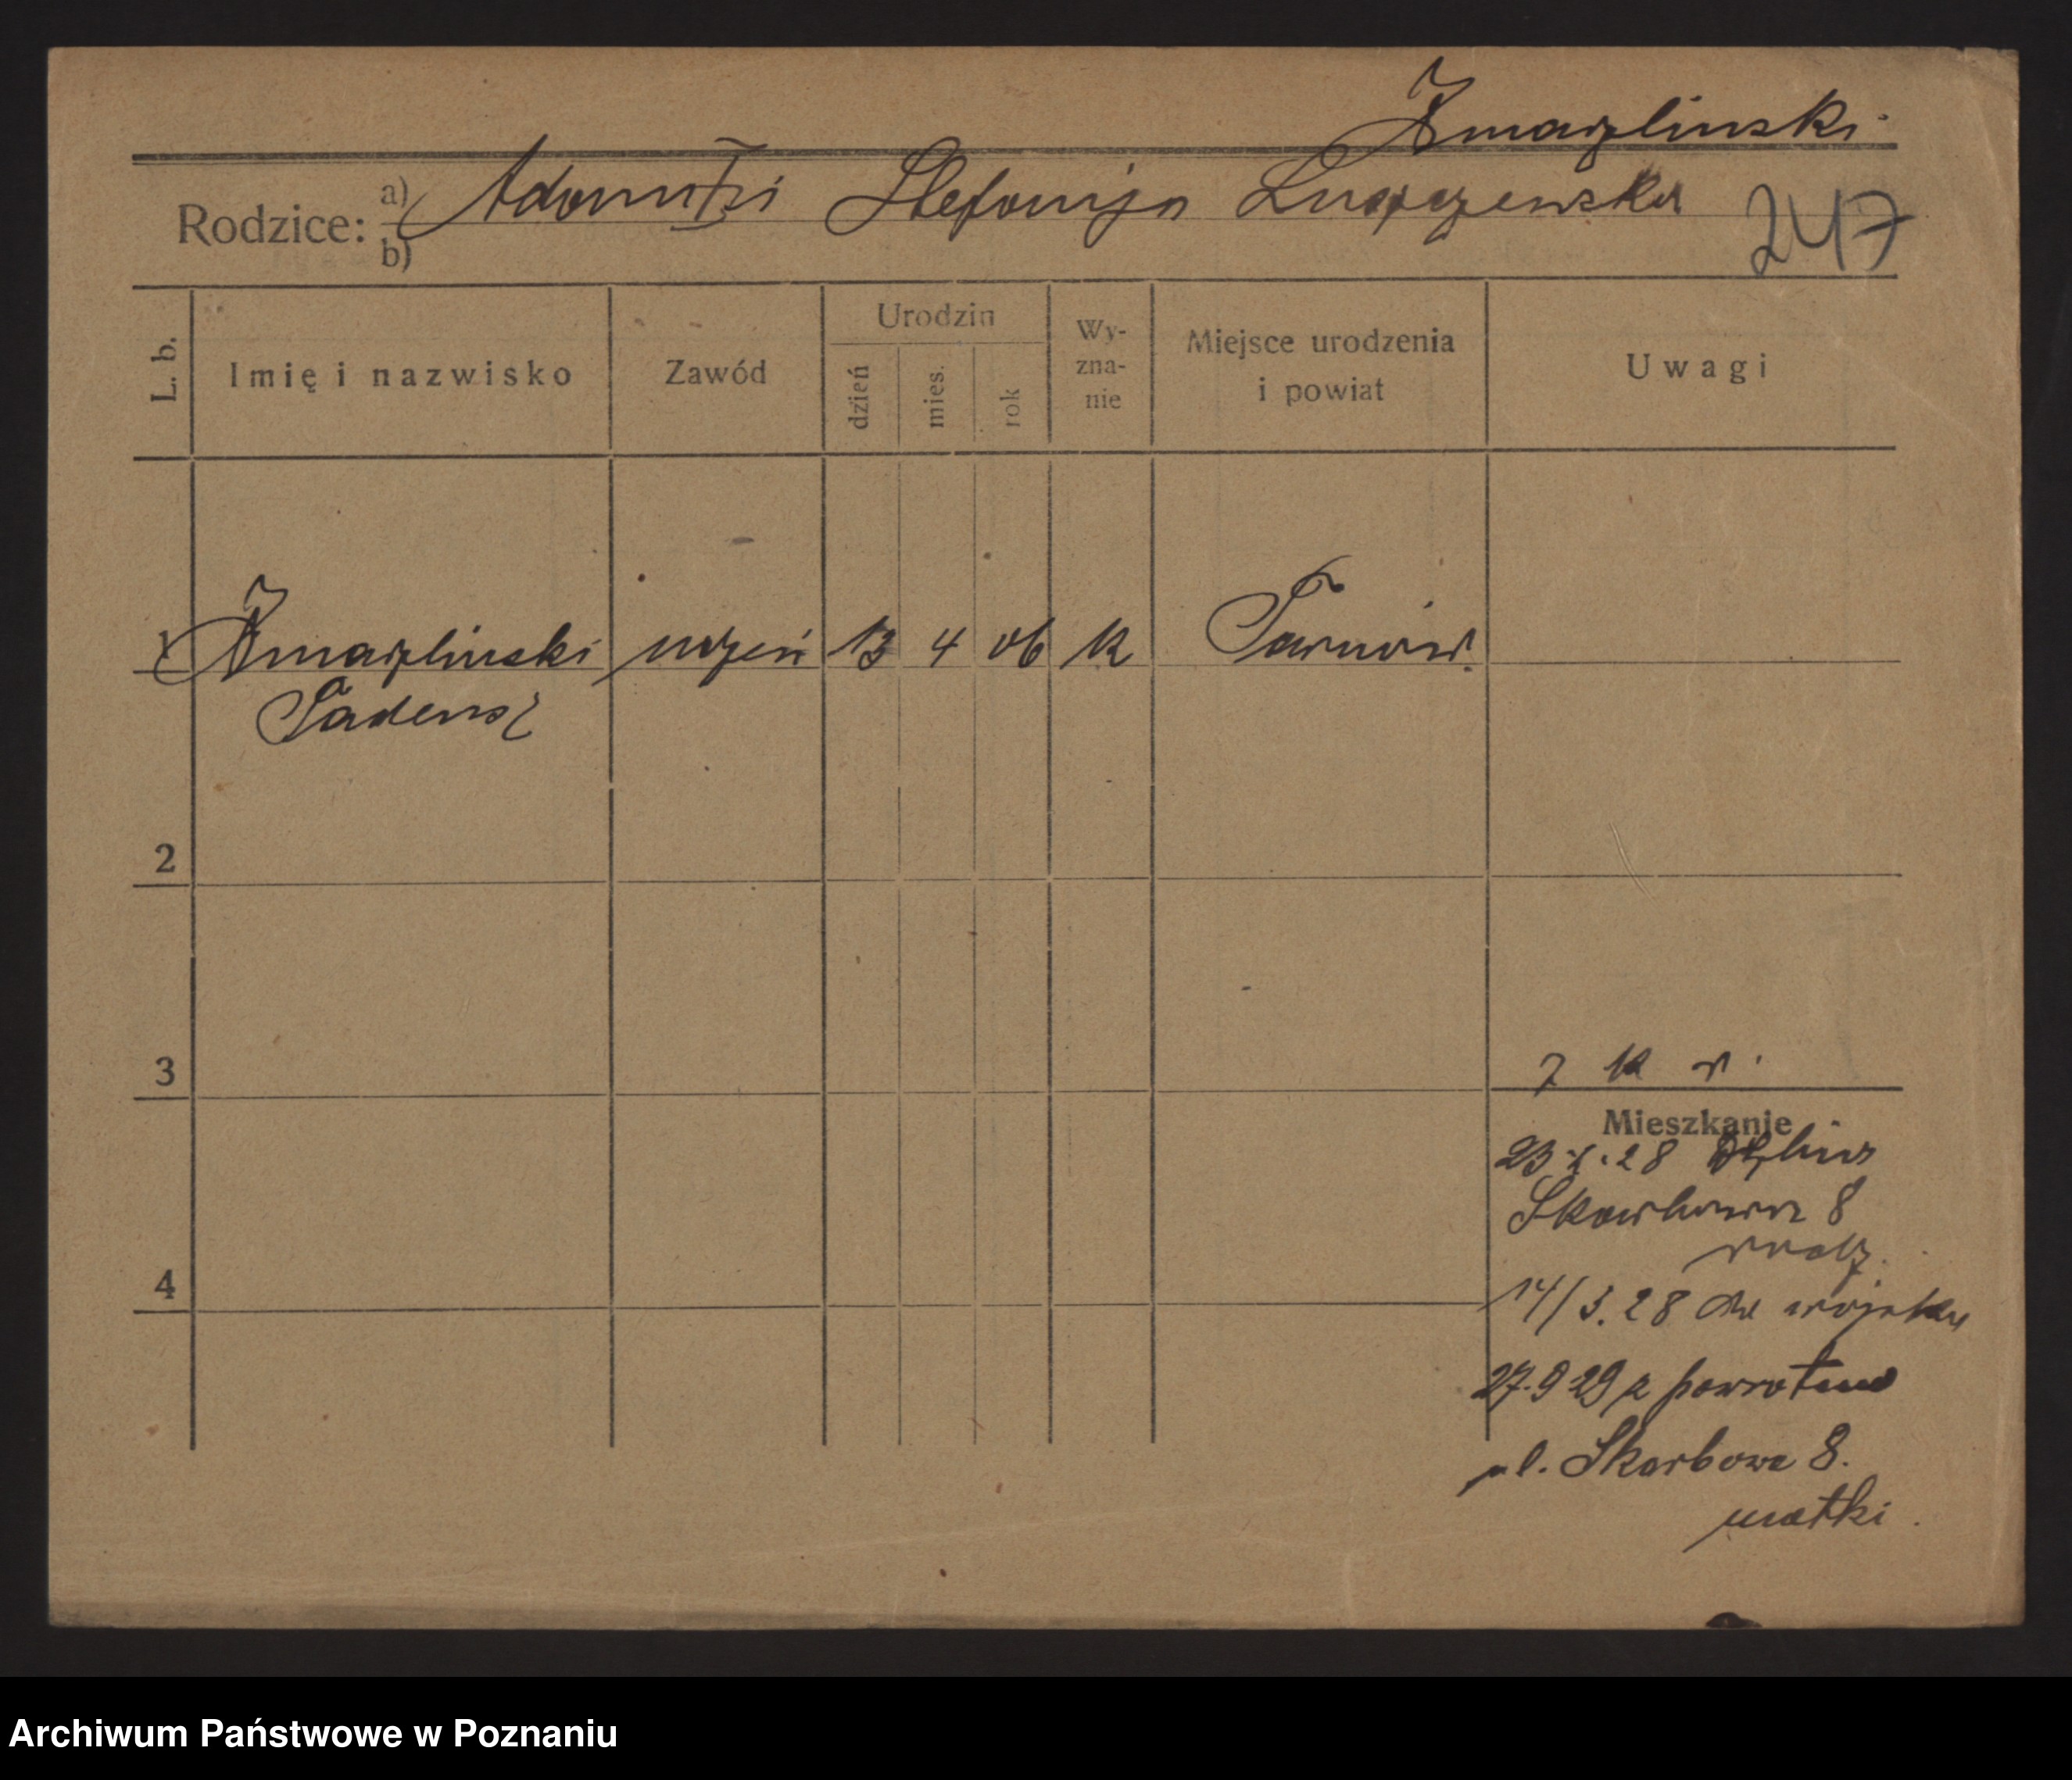 Zmarzlinski
Rodzice: a) Adam Stefanija
b)
247
L. b.
Imię i nazwisko
Zawód
Urodzin
dzień
mies.
rok
Wy-
zna-
nie
Miejsce urodzenia
i powiat
Uwagi
1 Zmarzlinski uczeń 13 4 06 K Tarnów.
Tadeusz
2
3
4
7 K
Mieszkanie
23.1.28
Skarbowa 8
14/3.28 do wojska
27.9 29 z powrotem
ul. Skarbowa 8.
matki.
Archiwum Państwowe w Poznaniu